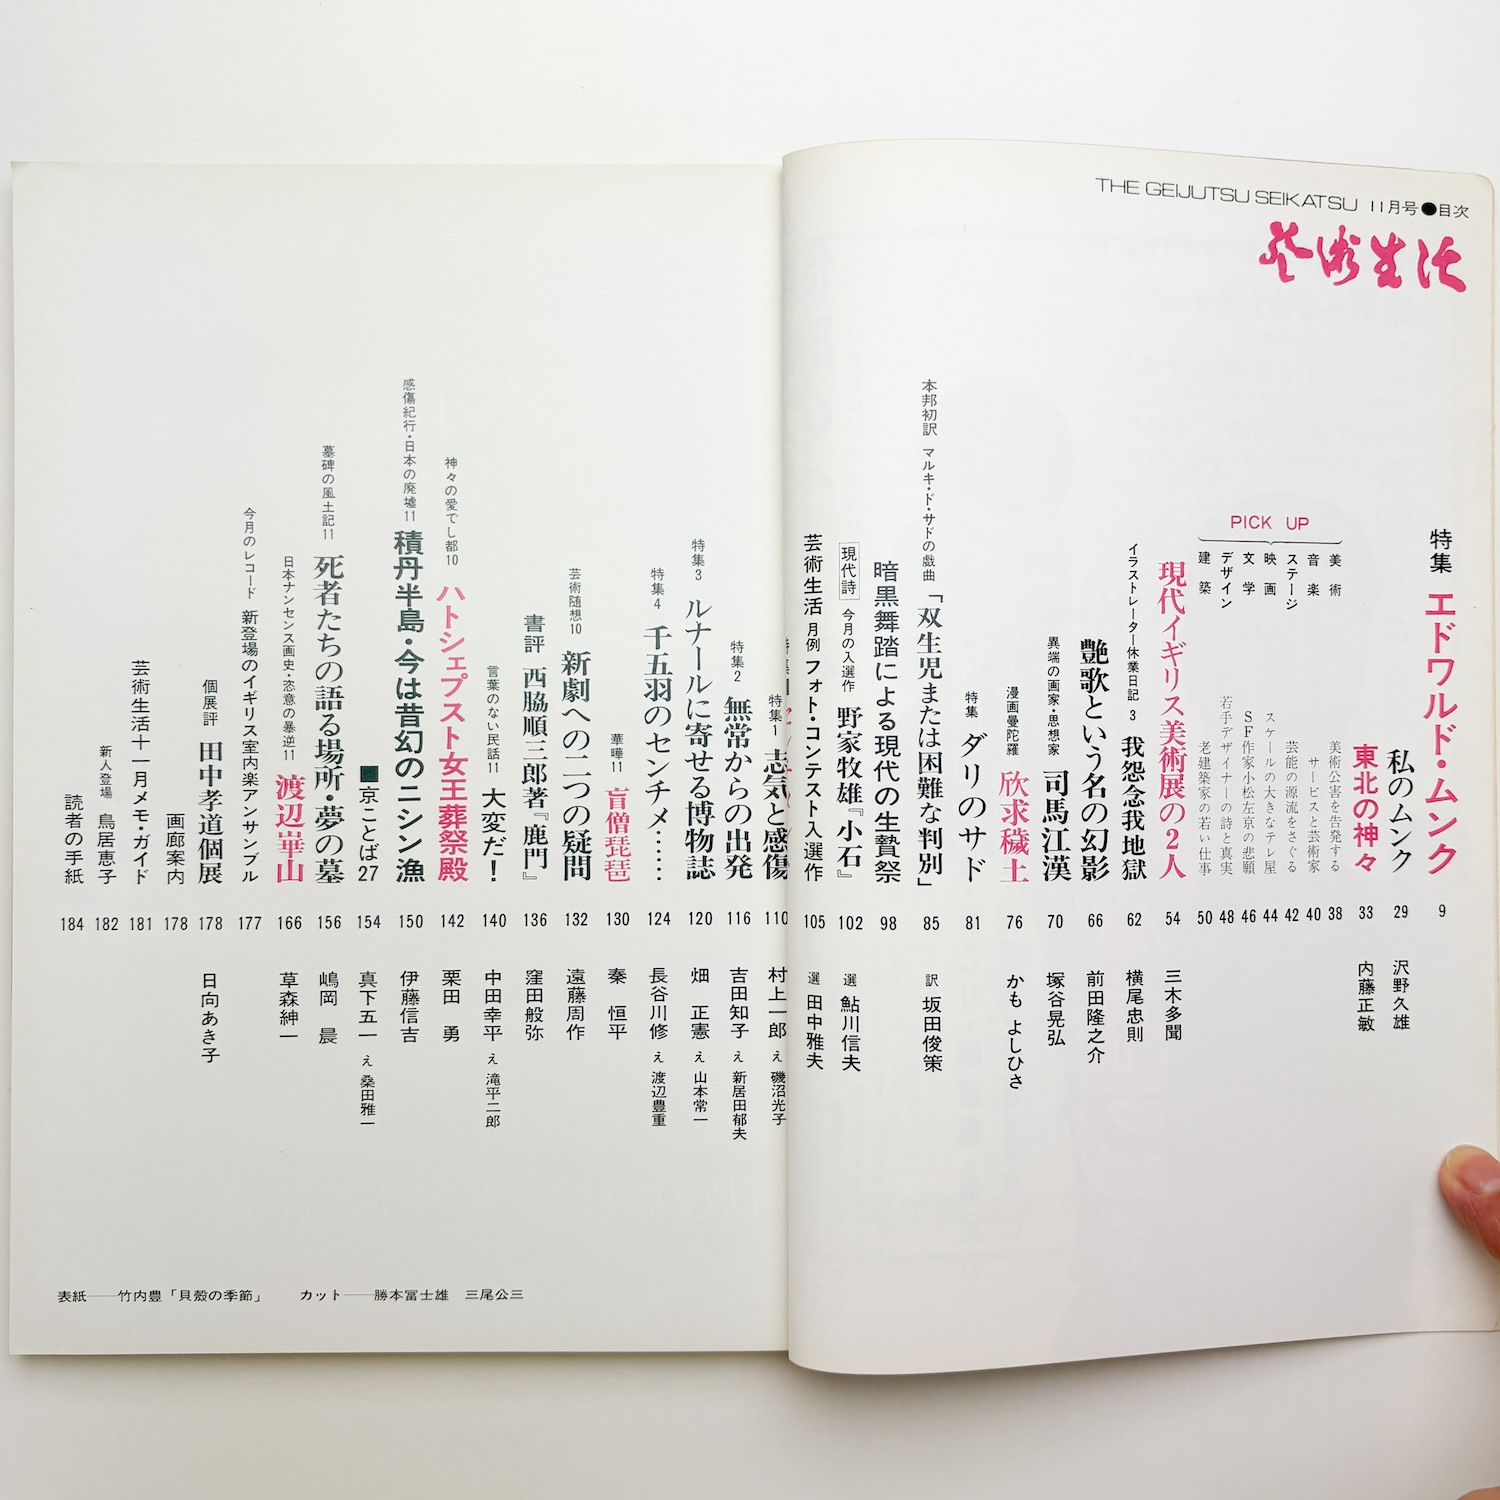 THE GEIJUTSU SEIKATSU 11月号●目次
芸術生活
特集 エドワルド・ムンク 9
私のムンク 29 沢野久雄
東北の神々 33 内藤正敏
PICK UP
美術 美術公害を告発する 38
音楽 サービスと芸術家 40
ステージ 芸能の源流をさぐる 42
映画 スケールの大きなテレ屋 44
文学 SF作家小松左京の悲願 46
デザイン 若手デザイナーの詩と真実 48
建築 老建築家の若い仕事 50
現代イギリス美術展の2人 54 三木多聞
イラストレーター休業日記3 我怨念我地獄 62 横尾忠則
艶歌という名の幻影 66 前田隆之介
異端の画家・思想家 司馬江漢 70 塚谷晃弘
漫画曼陀羅 欣求穢土 76 かも よしひさ
特集 ダリのサド 81
本邦初訳 マルキ・ド・サドの戯曲 「双生児または困難な判別」 85 訳 坂田俊策
暗黒舞踏による現代の生贄祭 98
現代詩 今月の入選作 野家牧雄『小石』 102 選 鮎川信夫
芸術生活 月例 フォト・コンテスト入選作 105 選 田中雅夫
特集1 志気と感傷 110 村上一郎 え 磯沼光子
特集2 無常からの出発 116 吉田知子 え 新居田郁夫
特集3 ルナールに寄せる博物誌 120 畑 正憲 え 山本常一
特集4 千五羽のセンチメ…… 124 長谷川修 え 渡辺豊重
華曄11 盲僧琵琶 130 秦 恒平
芸術随想10 新劇への二つの疑問 132 遠藤周作
書評 西脇順三郎著『鹿門』 136 窪田般弥
言葉のない民話11 大変だ! 140 中田幸平 え 滝平二郎
神々の愛でし都10 ハトシェプスト女王葬祭殿 142 栗田 勇
感傷紀行・日本の廃墟11 積丹半島・今は昔幻のニシン漁 150 伊藤信吉
■京ことば27 154 真下五一 え 桑田雅一
墓碑の風土記11 死者たちの語る場所・夢の墓 156 嶋岡 晨
日本ナンセンス画史・恣意の暴逆11 渡辺崋山 166 草森紳一
今月のレコード 新登場のイギリス室内楽アンサンブル 177
個展評 田中孝道個展 178 日向あき子
画廊案内 178
芸術生活十一月メモ・ガイド 181
新人登場 鳥居恵子 182
読者の手紙 184
表紙──竹内豊「貝殻の季節」 カット──勝本冨士雄 三尾公三